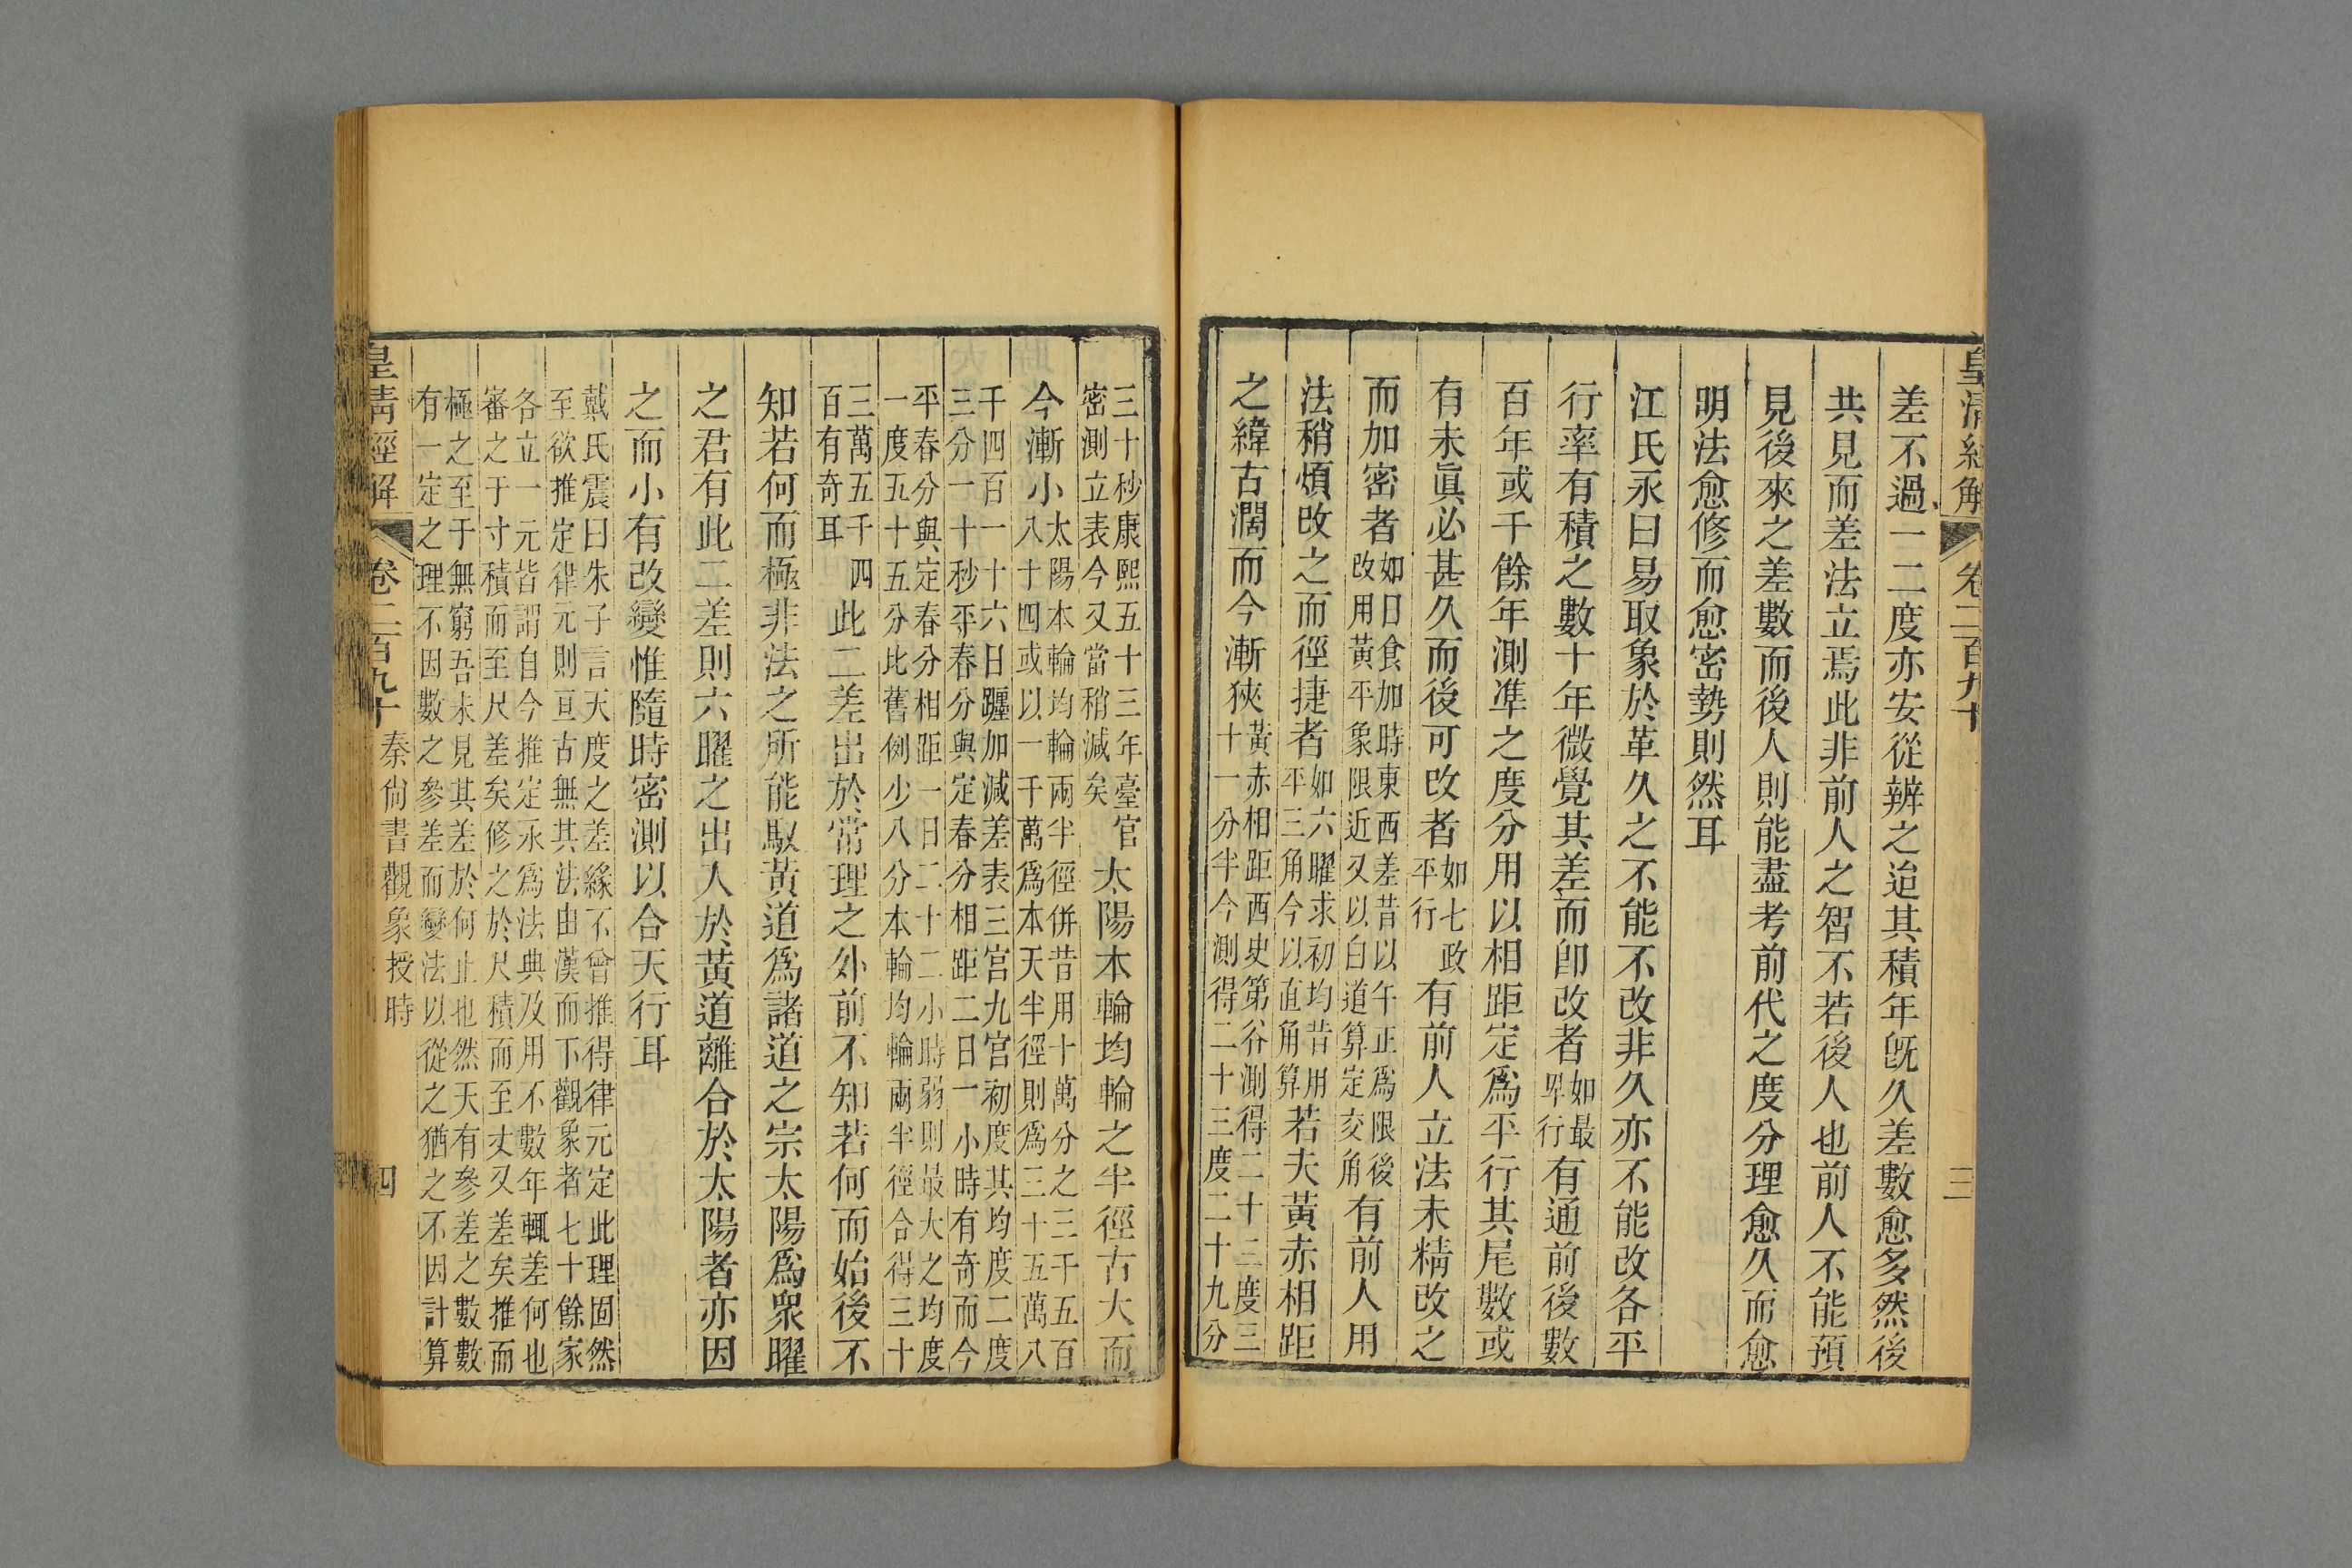 皇清經解
卷二百九十
三
差不過一二度亦安從辨之迨其積年旣久差數愈多然後
共見而差法立焉此非前人之智不若後人也前人不能預
見後來之差數而後人則能盡考前代之度分理愈久而愈
明法愈修而愈密勢則然耳
江氏永曰易取象於革久之不能不改非久亦不能改各平
行率有積之數十年微覺其差而卽改者如最
卑行有通前後數
百年或千餘年測準之度分用以相距定爲平行其尾數或
有未眞必甚久而後可改者如七政
平行有前人立法未精改之
而加密者如日食加時東西差昔以午正爲限後
改用黃平象限近又以白道算定交角有前人用
法稍煩改之而徑捷者如六曜求初均昔用
平三角今以直角算若夫黃赤相距
之緯古濶而今漸狹黃赤相距西史第谷測得二十三度三
十一分半今測得二十三度二十九分
三十秒康熙五十三年臺官
密測立表今又當稍減矣太陽本輪均輪之半徑古大而
今漸小太陽本輪均輪兩半徑併昔用十萬分之三千五百
八十四或以一千萬爲本天半徑則爲三十五萬八
千四百一十六日躔加減差表三宮九宮初度其均度二度
三分一十秒平春分與定春分相距二日一小時有奇而今
平春分與定春分相距一日二十二小時弱則最大之均度
一度五十五分比舊例少八分本輪均輪兩半徑合得三十
三萬五千四
百有奇耳此二差出於常理之外前不知若何而始後不
知若何而極非法之所能馭黃道爲諸道之宗太陽爲衆曜
之君有此二差則六曜之出入於黃道離合於太陽者亦因
之而小有改變惟隨時密測以合天行耳
戴氏震曰朱子言天度之差緣不曾推得律元定此理固然
至欲推定律元則亘古無其法由漢而下觀象者七十餘家
各立一元皆謂自今推定永爲法典及用不數年輒差何也
審之于寸積而至尺差矣修之於尺積而至丈又差矣推而
極之至于無窮吾未見其差於何止也然天有參差之數數
有一定之理不因數之參差而變法以從之猶之不因計算
皇清經解
卷二百九十
秦尙書觀象授時
四